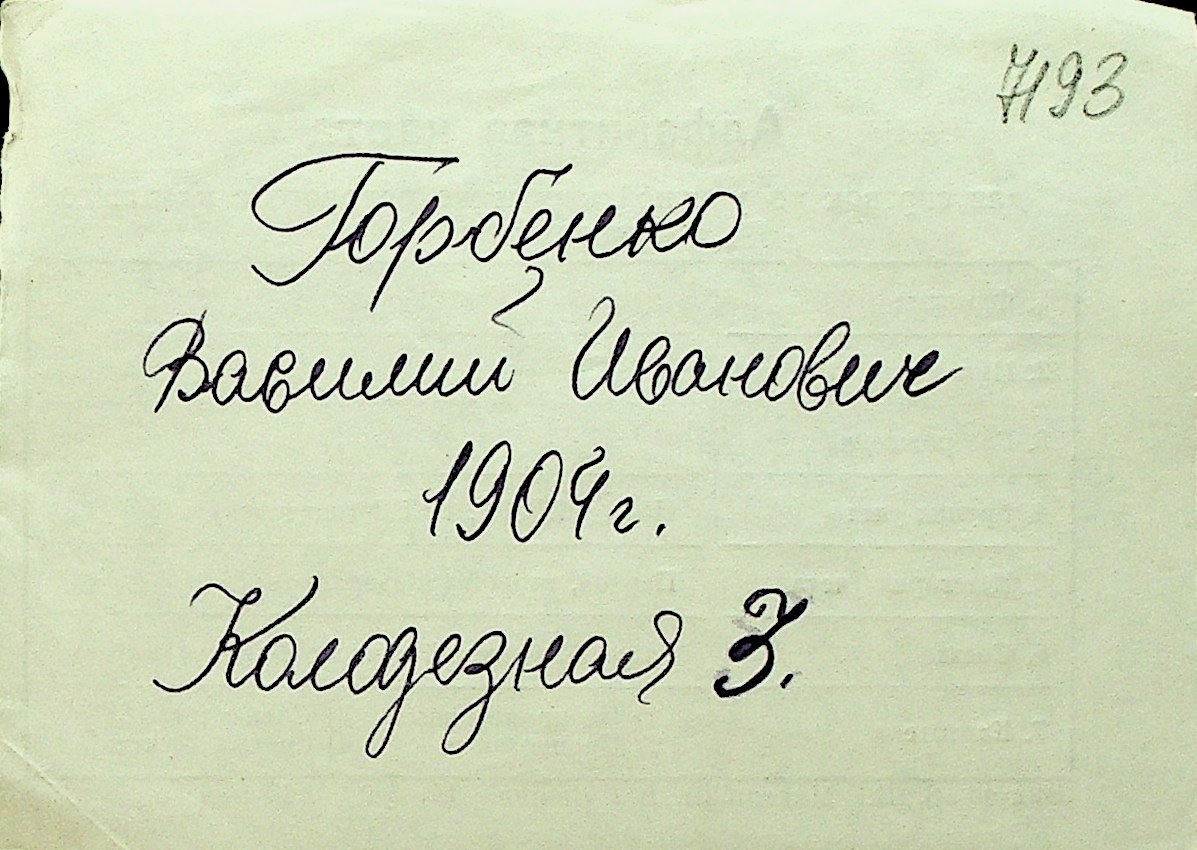 7193
Горбенко
Василий Иванович
1904г.
Колодезная 3.